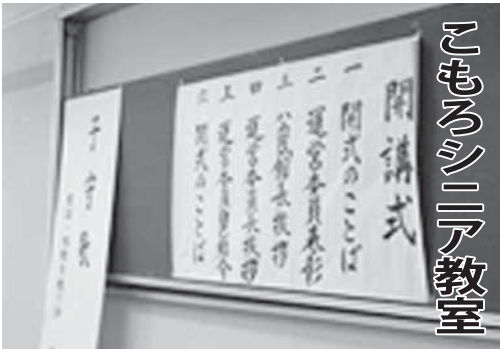 こもろシニア教室
開講式
一 開式のことば
二 運営委員表彰
三 公民館長挨拶
四 運営委員長挨拶
五 運営委員紹介
六 閉式のことば